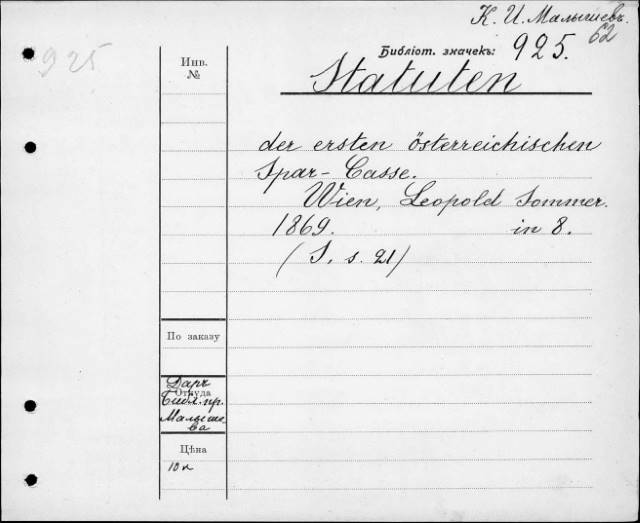 К. И. Малышевъ
62
925
Библіот. значекъ: 925.
Инв. №
Statuten
der ersten österreichischen
Spar-Casse.
Wien, Leopold Sommer.
1869. in 8.
(S. s. 21)
По заказу
Откуда
Даръ
Библ. пр.
Малыше
ва
Цѣна
10 к